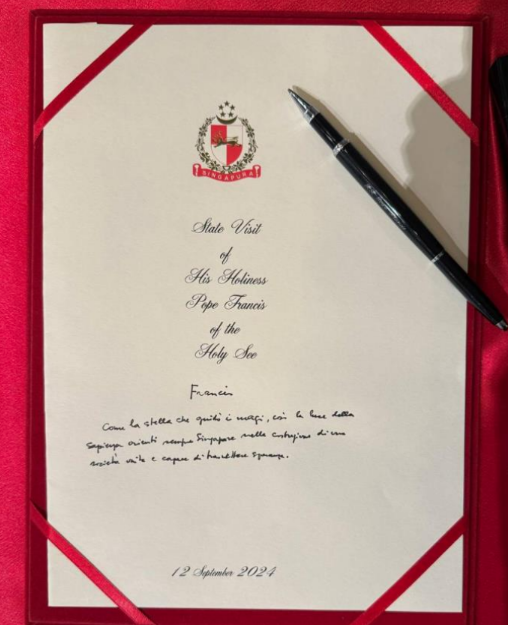 SINGAPURA
State Visit
of
His Holiness
Pope Francis
of the
Holy See
Francis
Come la stella che guidò i magi, così la luce della
sapienza orienti sempre Singapore nella costruzione di una
società unita e capace di trasmettere speranza.
12 September 2024